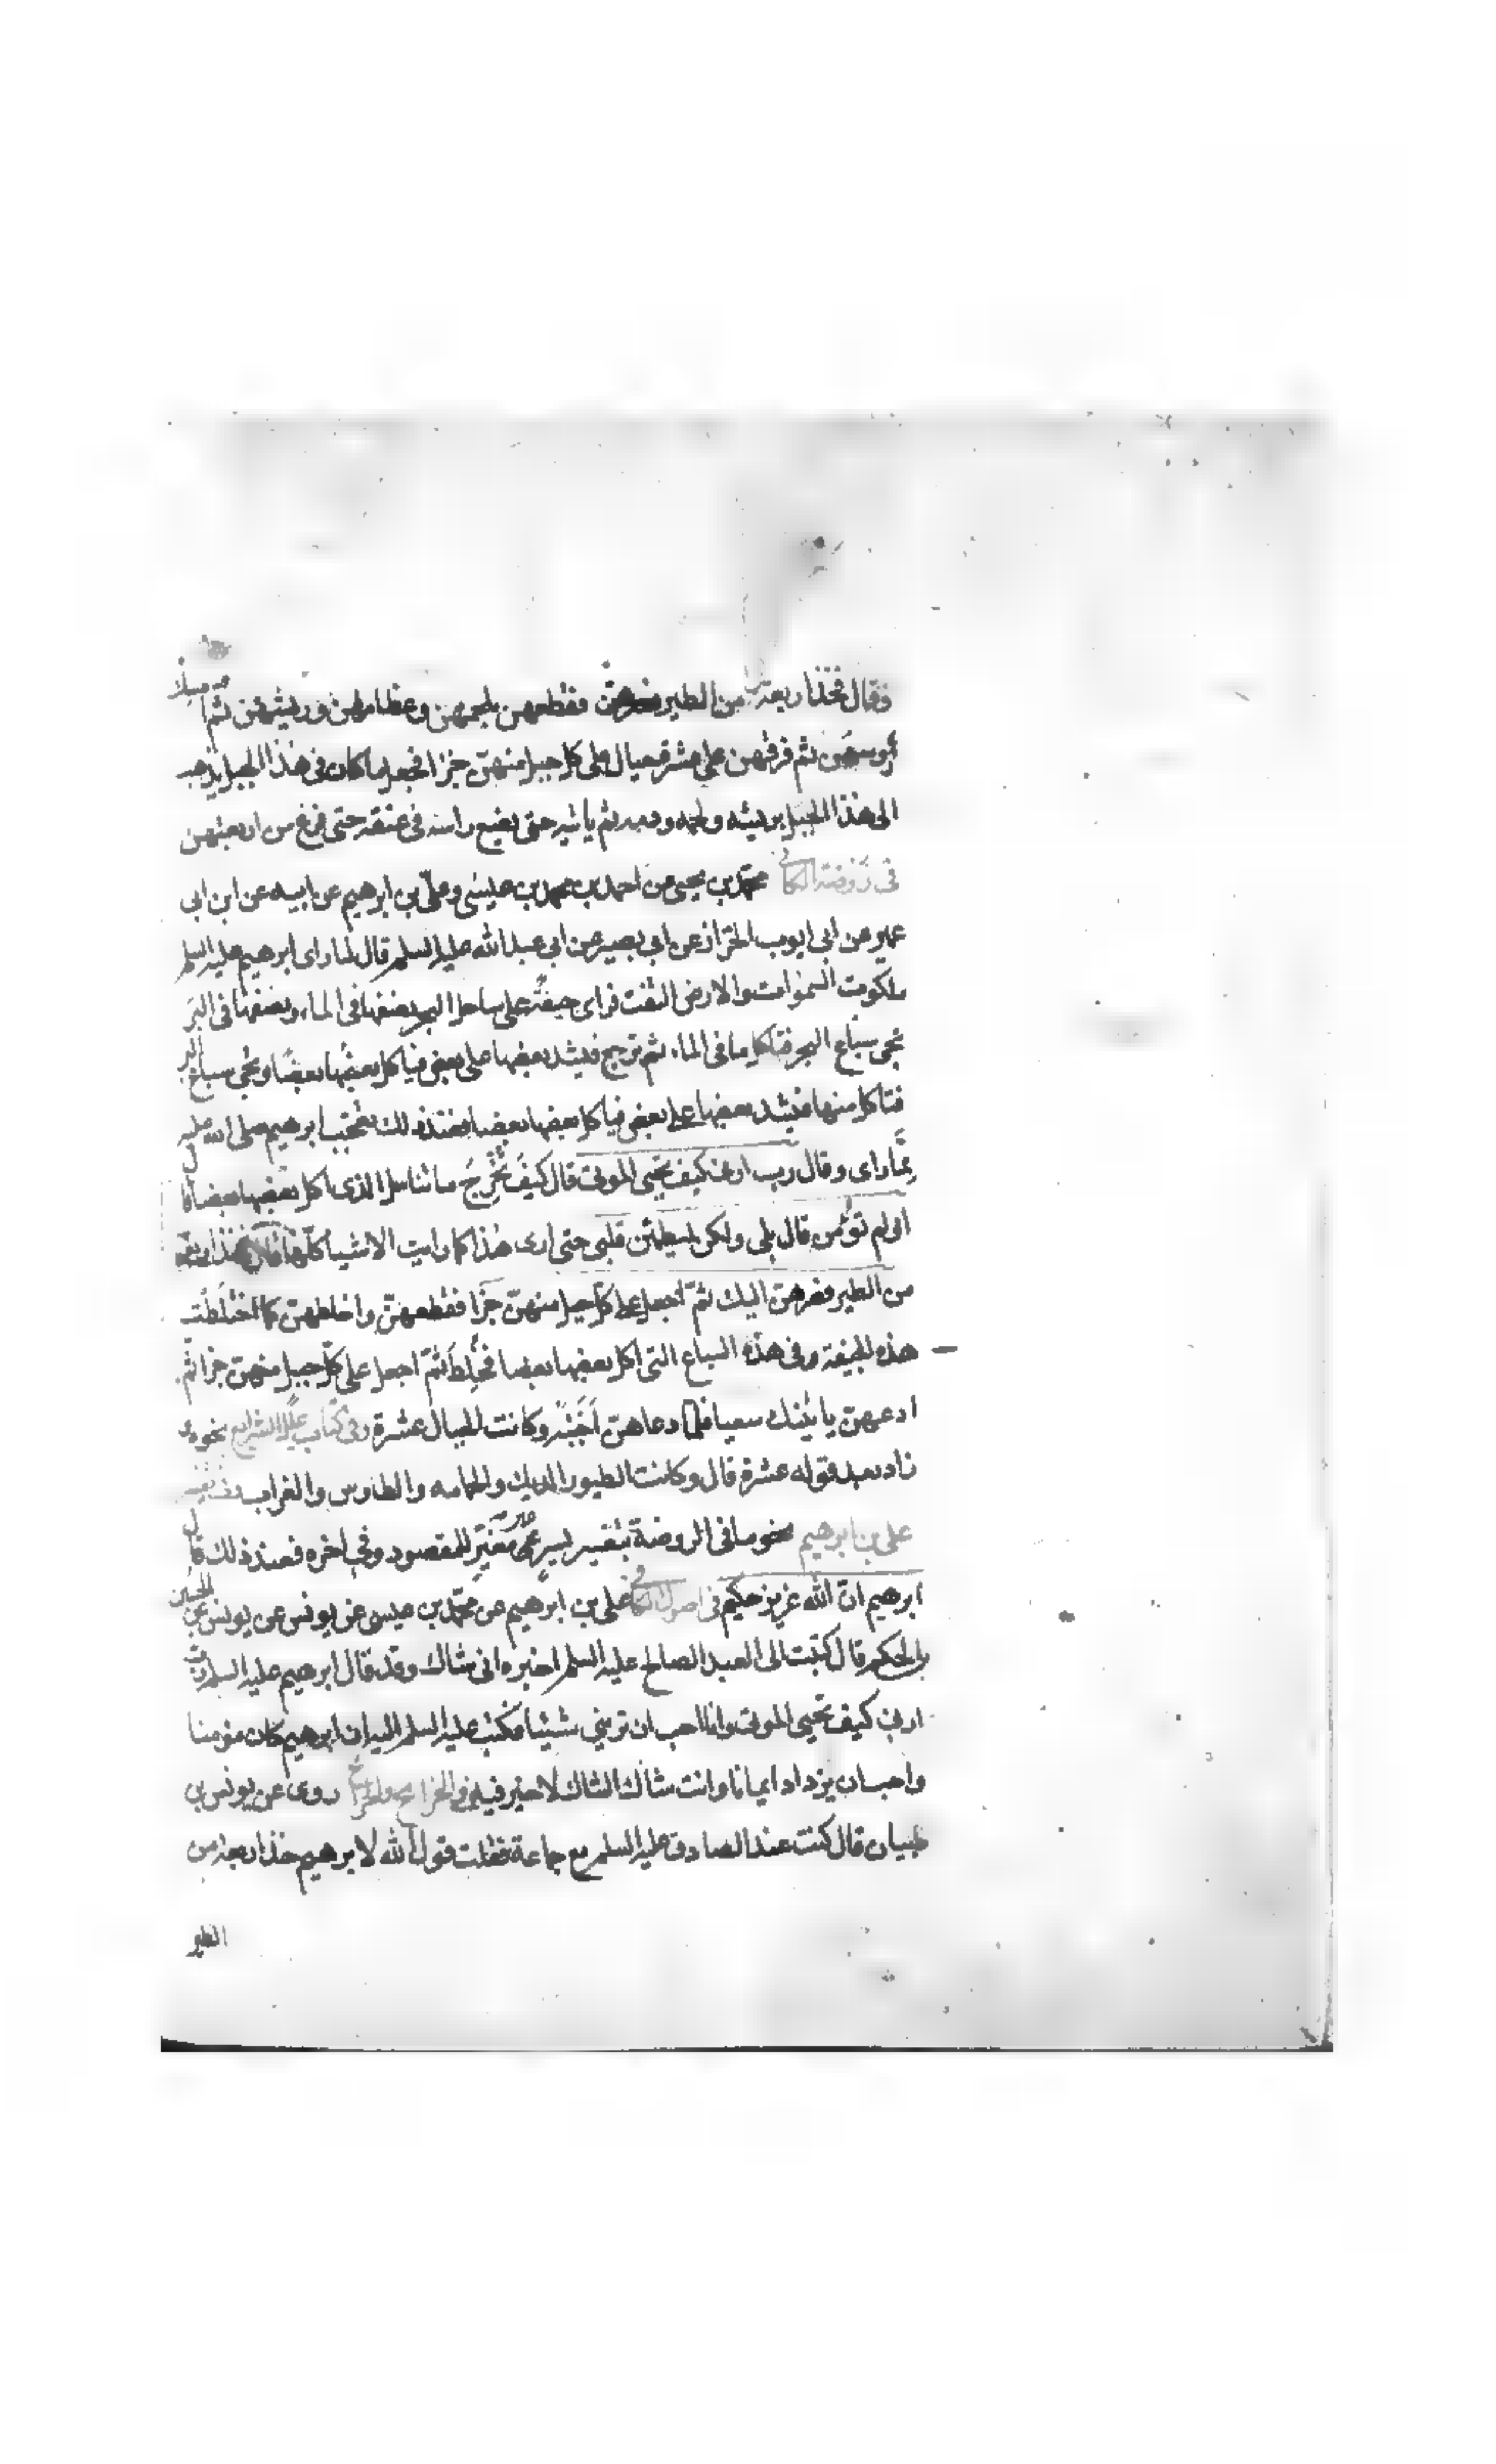 فقال فخذ اربعة من الطير فصرهن فقطعهن بلحمهن وعظامهن وريشهن ثم
امسك رؤسهن ثم فرقهن على عشرة جبال على كل جبل منهن جزأ فجعل ما كان فى هذا الجبل يذهب
الى هذا الجبل بريشه ولحمه ودمه ثم ياتيه حتى يضع راسه فى عنقه حتى فرغ من اربعتهن
فى روضة الكافى محمد بن يحيى عن احمد بن محمد بن عيسى وعلى بن ابرهيم عن ابيه عن ابن ابى
عمير عن ابى ايوب الخزاز عن ابى بصير عن ابى عبد الله عليه السلم قال لما راى ابرهيم عليه السلم
ملكوت السموات والارض التفت فراى جيفة على ساحل البحر نصفها فى الماء ونصفها فى البر
تجى سباع البحر فتاكل ما فى الماء ثم ترجع فيشد بعضها على بعض فياكل بعضها بعضا وتجى سباع البر
فتاكل منها فيشد بعضها على بعض فياكل بعضها بعضا فعند ذلك تعجب ابرهيم صلى الله عليه
مما راى وقال رب ارنى كيف تحيى الموتى قال كيف تخرج ما تناسل الذى اكل بعضها بعضا قال
اولم تؤمن قال بلى ولكن ليطمئن قلبى حتى ارى هذا كما رايت الاشياء كلها قال فخذ اربعة
من الطير فصرهن اليك ثم اجعل على كل جبل منهن جزأ فقطعهن واخلطهن كما اختلطت
هذه الجيفة وفى هذه السباع التى اكل بعضها بعضا فخلط ثم اجعل على كل جبل منهن جزأ ثم
ادعهن ياتينك سعيا فلما دعاهن اجبنه وكانت الجبال عشرة وفى كتاب علل الشرايع نحوه و
زاد بعد قوله عشرة قال وكانت الطيور الديك والحمامه والطاوس والغراب وفى تفسير
على بن ابرهيم نحو ما فى الروضة بتغيير يسير غير مغير للمقصود وفى اخره فعند ذلك قال
ابرهيم ان الله عزيز حكيم فى اصول الكافى على بن ابرهيم عن محمد بن عيسى عن يونس عن الحسين
بن الحكم قال كتبت الى العبد الصالح عليه السلم اخبره انى شاك وقد قال ابرهيم عليه السلم رب
ارنى كيف تحيى الموتى وانا احب ان ترينى شيئا فكتب عليه السلم اليه ان ابرهيم كان مؤمنا
واحب ان يزداد ايمانا وانت شاك والشاك لا خير فيه وفى الخرائج والجرائح روى عن يونس بن
ظبيان قال كنت عند الصادق عليه السلم مع جماعة فقلت قول الله لابرهيم خذ اربعة من
الطير